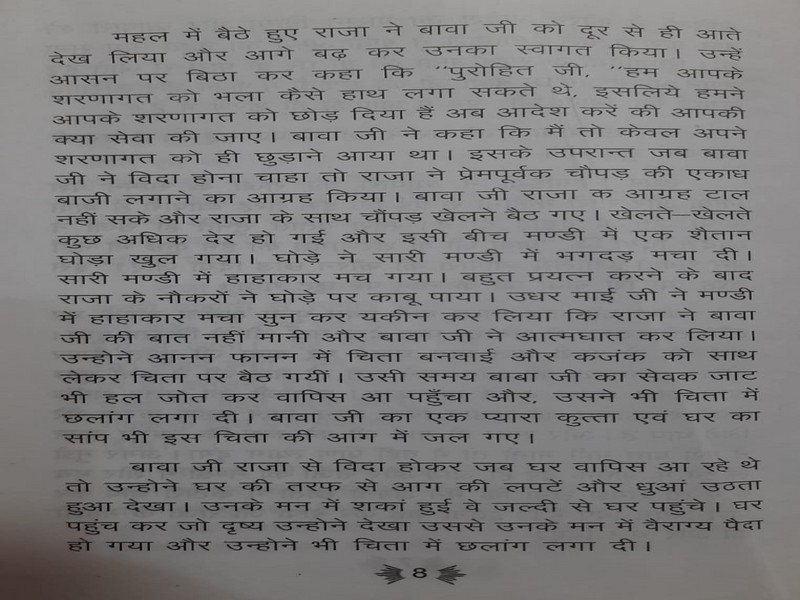 महल में बैठे हुए राजा ने बावा जी को दूर से ही आते
देख लिया और आगे बढ़ कर उनका स्वागत किया। उन्हें
आसन पर बिठा कर कहा कि ''पुरोहित जी, ''हम आपके
शरणागत को भला कैसे हाथ लगा सकते थे, इसलिये हमने
आपके शरणागत को छोड़ दिया हैं अब आदेश करें की आपकी
क्या सेवा की जाए। बावा जी ने कहा कि मैं तो केवल अपने
शरणागत को ही छुड़ाने आया था। इसके उपरान्त जब बावा
जी ने विदा होना चाहा तो राजा ने प्रेमपूर्वक चौपड़ की एकाध
बाजी लगाने का आग्रह किया। बावा जी राजा क आग्रह टाल
नहीं सके और राजा के साथ चौंपड़ खेलने बैठ गए। खेलते–खेलते
कुछ अधिक देर हो गई और इसी बीच मण्डी में एक शैतान
घोड़ा खुल गया। घोड़े ने सारी मण्डी में भगदड़ मचा दी।
सारी मण्डी में हाहाकार मच गया। बहुत प्रयत्न करने के बाद
राजा के नौकरों ने घोड़े पर काबू पाया। उधर माई जी ने मण्डी
में हाहाकार मचा सुन कर यकीन कर लिया कि राजा ने बावा
जी की बात नहीं मानी और बावा जी ने आत्मघात कर लिया।
उन्होने आनन फानन में चिता बनवाई और कजंक को साथ
लेकर चिता पर बैठ गयीं। उसी समय बाबा जी का सेवक जाट
भी हल जोत कर वापिस आ पहुँचा और, उसने भी चिता में
छलांग लगा दी। बावा जी का एक प्यारा कुत्ता एवं घर का
सांप भी इस चिता की आग में जल गए।
बावा जी राजा से विदा होकर जब घर वापिस आ रहे थे
तो उन्होने घर की तरफ से आग की लपटें और धुआं उठता
हुआ देखा। उनके मन में शकां हुई वे जल्दी से घर पहुंचे। घर
पहुंच कर जो दृष्य उन्होने देखा उससे उनके मन में वैराग्य पैदा
हो गया और उन्होने भी चिता में छलांग लगा दी।
8